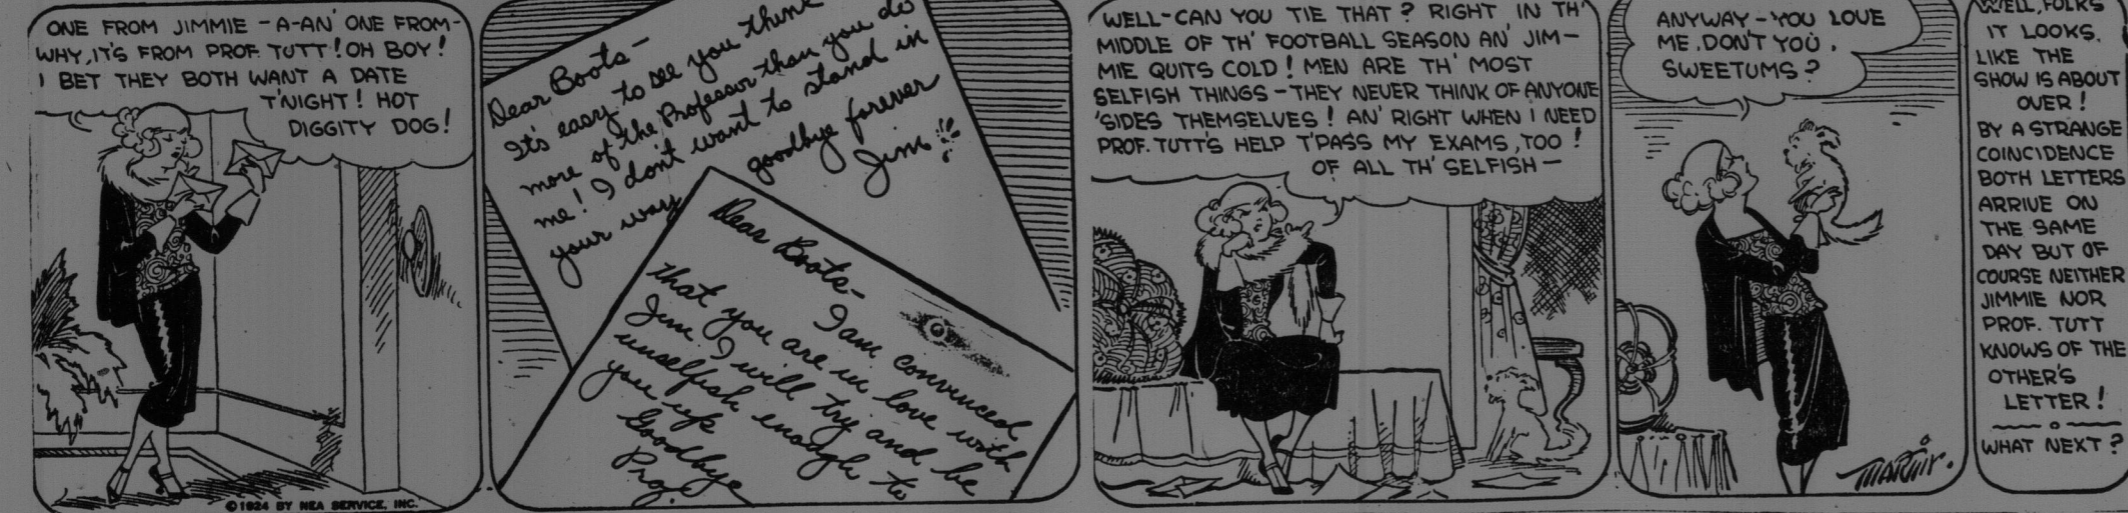 ONE FROM JIMMIE - A-AN' ONE FROM-
WHY, IT'S FROM PROF. TUTT! OH BOY!
I BET THEY BOTH WANT A DATE
T'NIGHT! HOT
DIGGITY DOG!
©1924 BY NEA SERVICE, INC.
Dear Boots-
It's easy to see you think
more of the Professor than you do
me! I don't want to stand in
your way
goodbye forever
Jim
Dear Boots-
I am convinced
that you are in love with
Jim I will try and be
unselfish enough to
you up
Goodbye
Prof.
WELL-CAN YOU TIE THAT? RIGHT IN TH'
MIDDLE OF TH' FOOTBALL SEASON AN' JIM-
MIE QUITS COLD! MEN ARE TH' MOST
SELFISH THINGS - THEY NEVER THINK OF ANYONE
'SIDES THEMSELVES! AN' RIGHT WHEN I NEED
PROF. TUTT'S HELP T'PASS MY EXAMS, TOO!
OF ALL TH' SELFISH -
ANYWAY - YOU LOVE
ME, DON'T YOU,
SWEETUMS?
MARTIN.
WELL, FOLKS
IT LOOKS
LIKE THE
SHOW IS ABOUT
OVER!
BY A STRANGE
COINCIDENCE
BOTH LETTERS
ARRIVE ON
THE SAME
DAY BUT OF
COURSE NEITHER
JIMMIE NOR
PROF. TUTT
KNOWS OF THE
OTHER'S
LETTER!
WHAT NEXT?